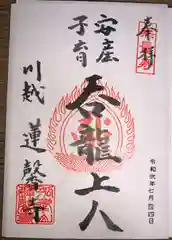 奉拝
安産
子育
呑龍上人
川越
蓮馨寺
令和弐年七月四日